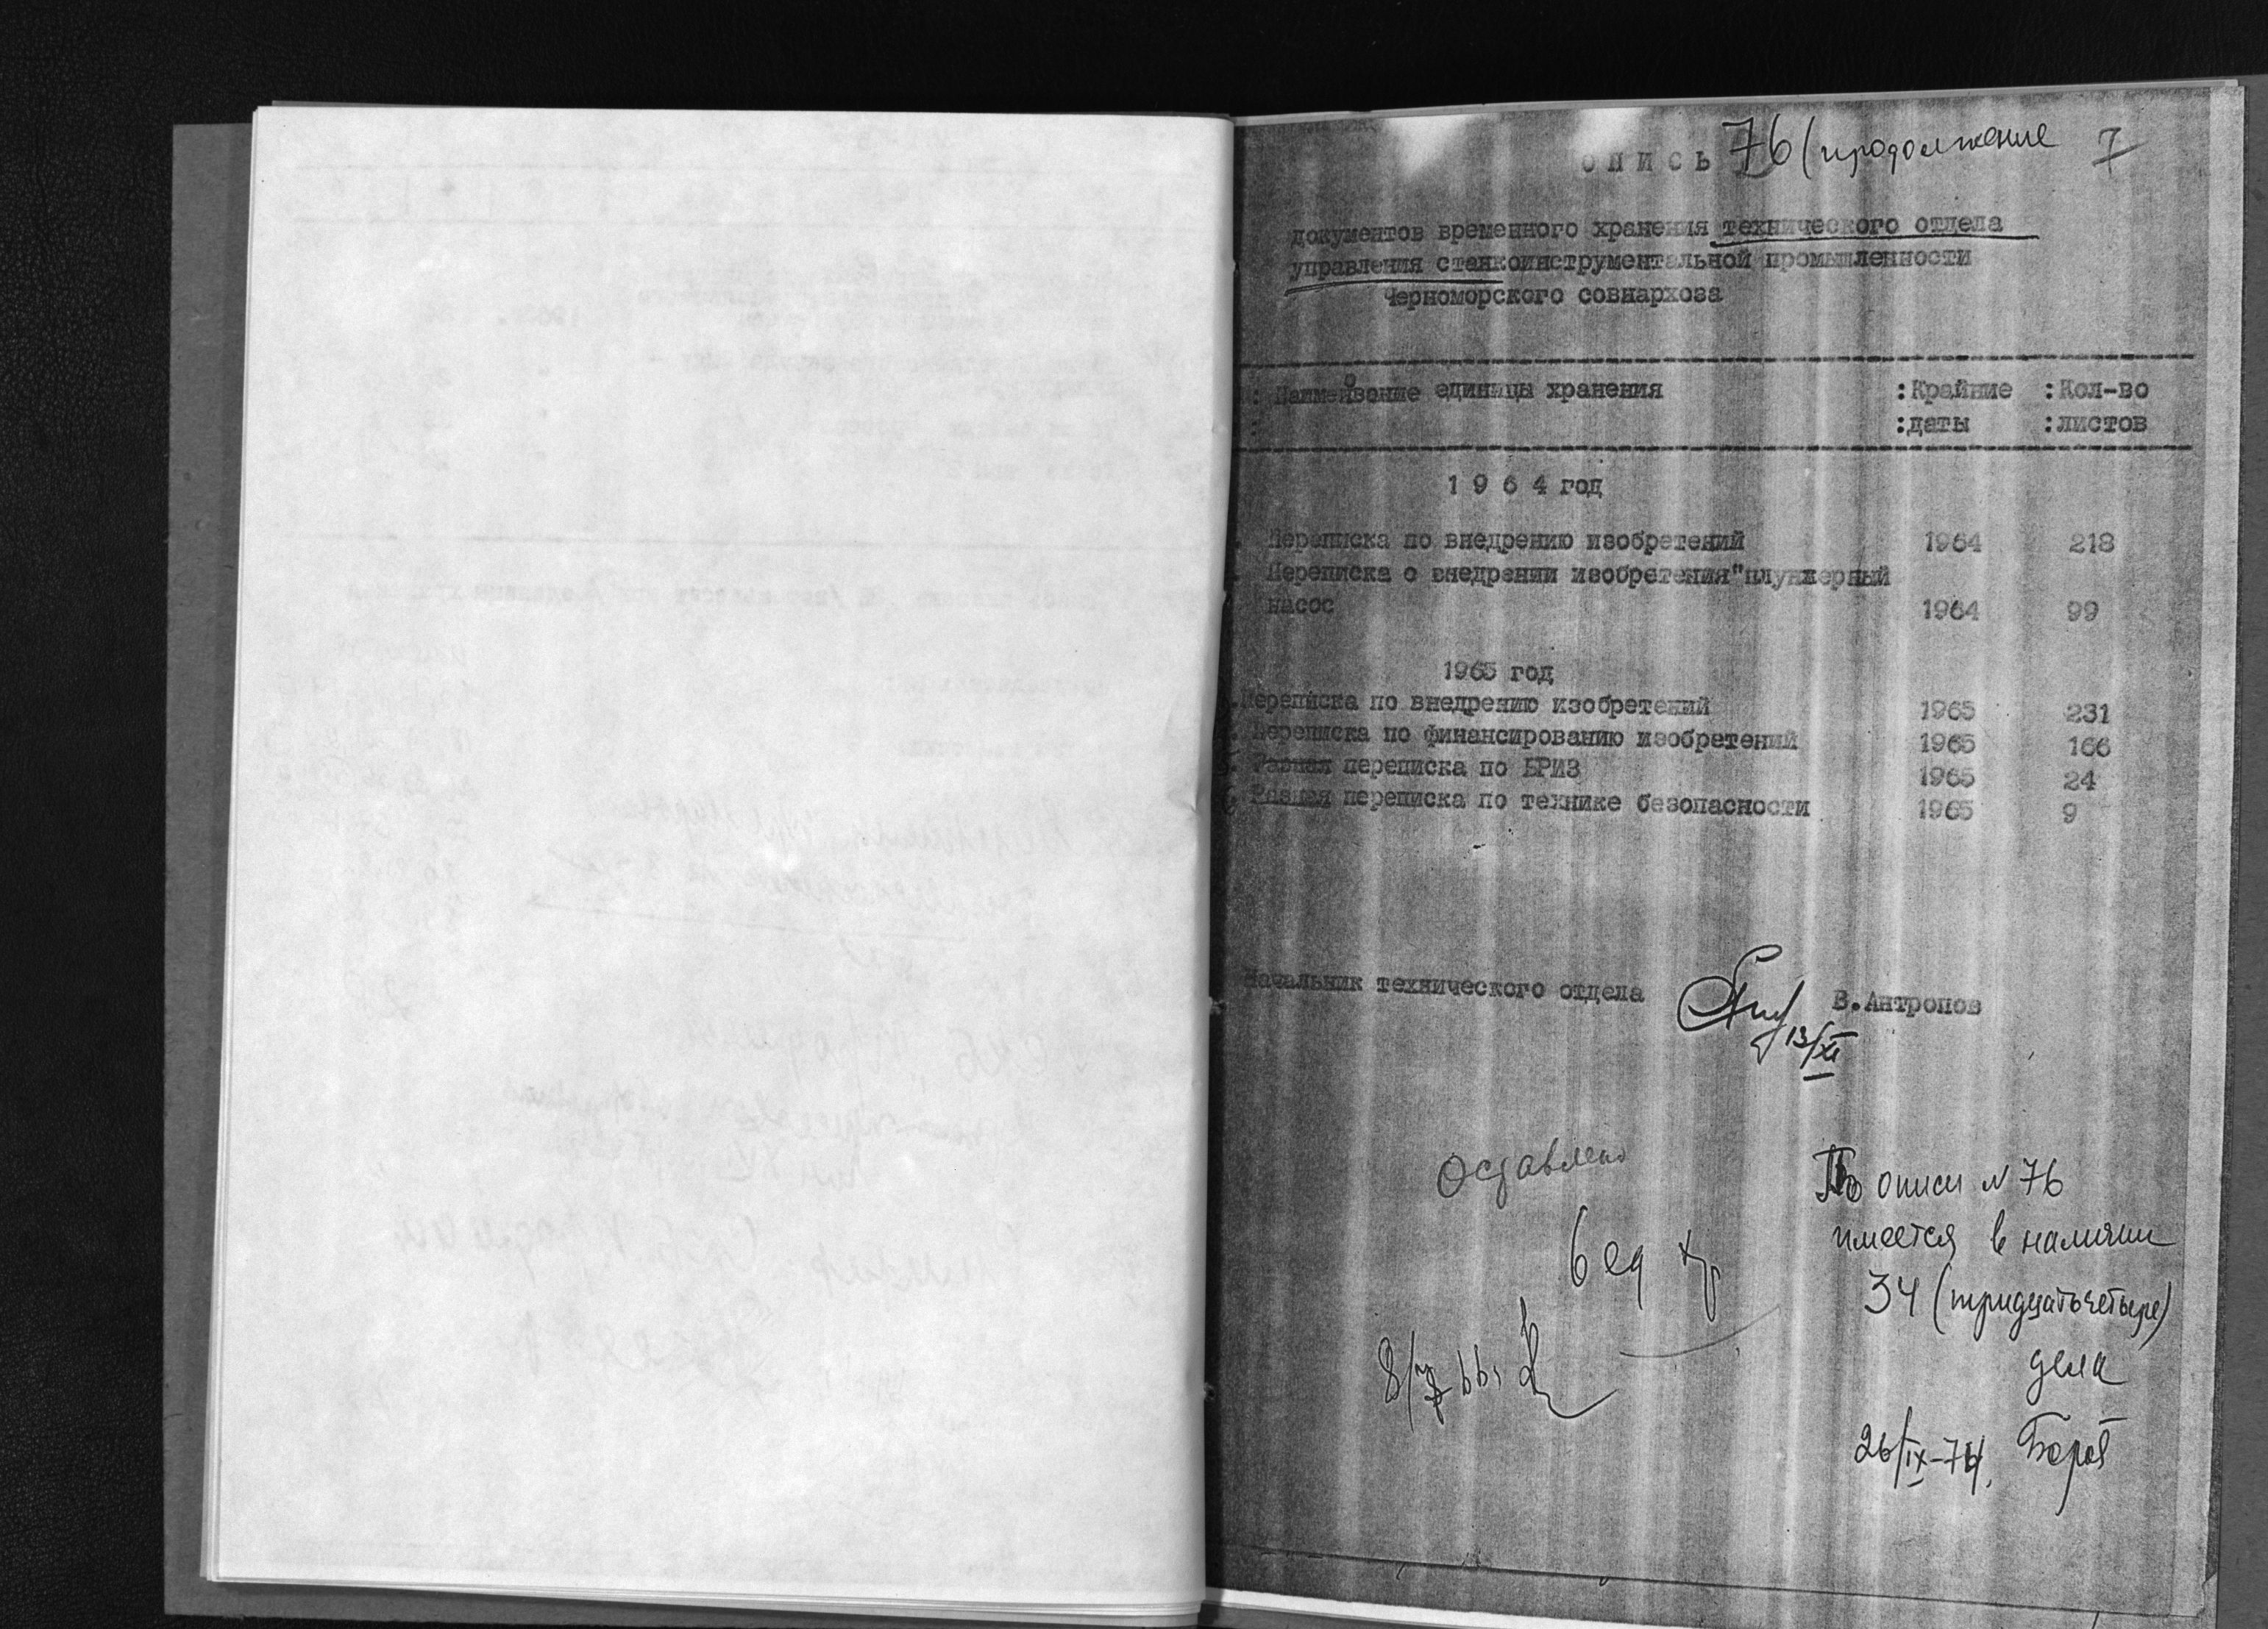 О П И С Ь 76 (продолжение 7
документов временного хранения технического отдела
управления станкоинструментальной промышленности
Черноморского совнархоза
: Наименование единицы хранения :Крайние :Кол-во
: :даты :листов
1 9 6 4 год
Переписка по внедрению изобретений 1964 218
Переписка о внедрении изобретения "плунжерный
насос 1964 99
1965 год
Переписка по внедрению изобретений 1965 231
Переписка по финансированию изобретений 1965 166
5. Разная переписка по БРИЗ 1965 24
6 Разная переписка по технике безопасности 1965 9
Начальник технического отдела В.Антропов
13/XI
Оставлено
6 ед хр
По описи № 76
имеется в наличии
34 (тридцать четыре)
дела
26/IX-74